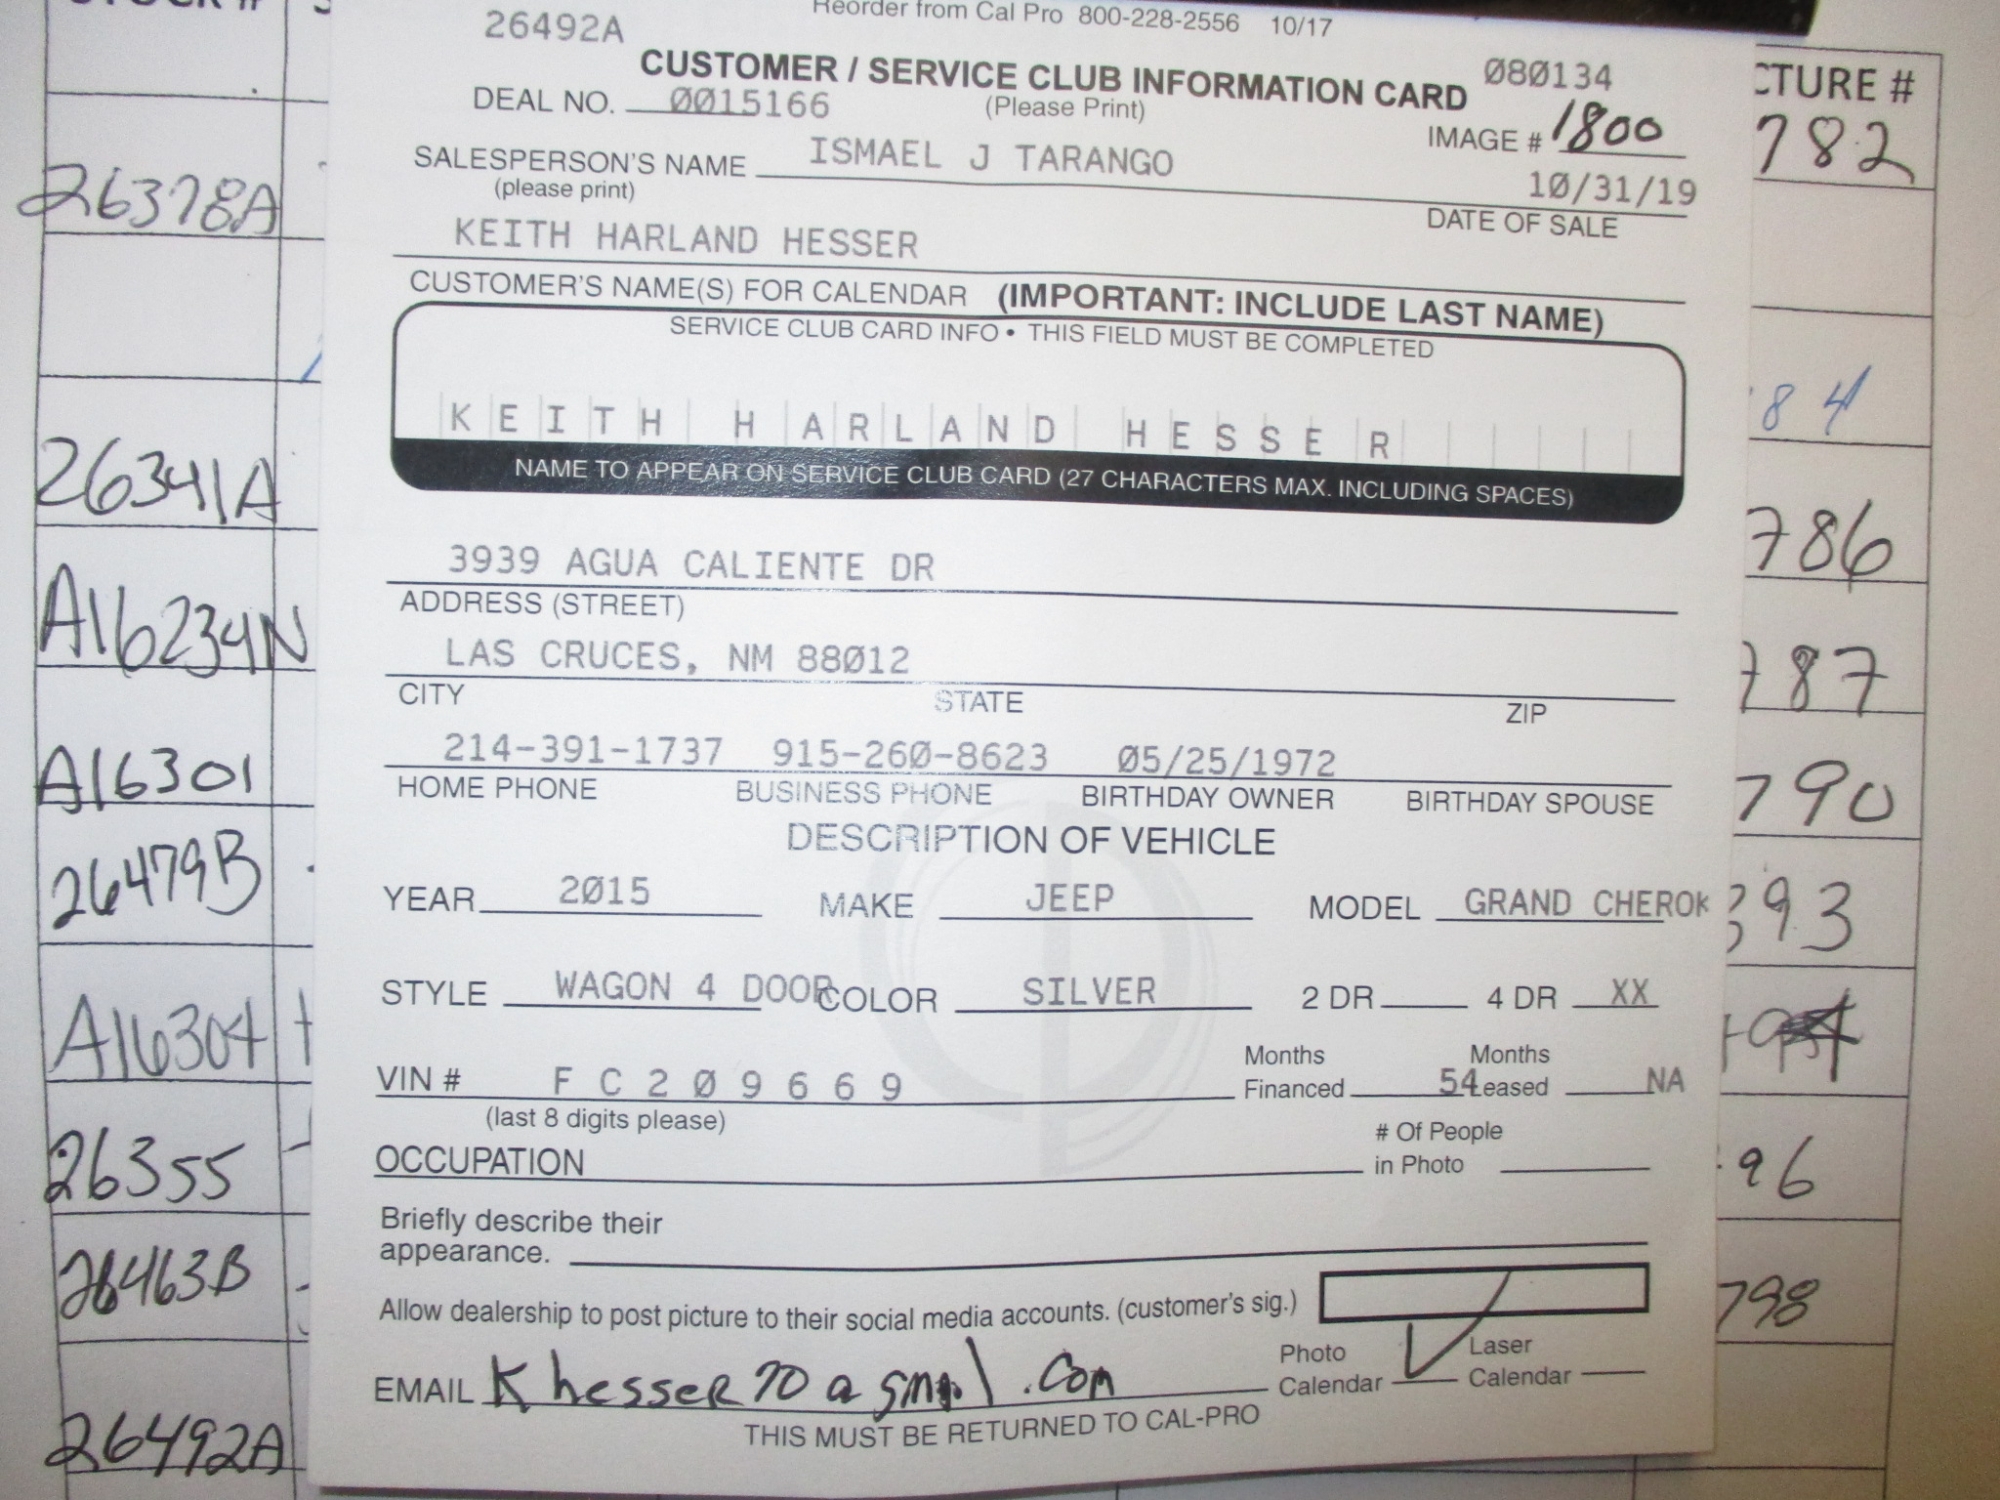 Reorder from Cal Pro 800-228-2556 10/17
26492A
CUSTOMER / SERVICE CLUB INFORMATION CARD 080134
DEAL NO. 0015166 (Please Print)
IMAGE # 1800
SALESPERSON'S NAME ISMAEL J TARANGO
(please print)
10/31/19
DATE OF SALE
KEITH HARLAND HESSER
CUSTOMER'S NAME(S) FOR CALENDAR (IMPORTANT: INCLUDE LAST NAME)
SERVICE CLUB CARD INFO • THIS FIELD MUST BE COMPLETED
KEITH HARLAND HESSER
NAME TO APPEAR ON SERVICE CLUB CARD (27 CHARACTERS MAX. INCLUDING SPACES)
3939 AGUA CALIENTE DR
ADDRESS (STREET)
LAS CRUCES, NM 88012
CITY STATE ZIP
214-391-1737 915-260-8623 05/25/1972
HOME PHONE BUSINESS PHONE BIRTHDAY OWNER BIRTHDAY SPOUSE
DESCRIPTION OF VEHICLE
YEAR 2015 MAKE JEEP MODEL GRAND CHEROK
STYLE WAGON 4 DOOR COLOR SILVER 2 DR 4 DR XX
VIN # FC209669 Months Financed 54 Months Leased NA
(last 8 digits please)
OCCUPATION # Of People in Photo
Briefly describe their
appearance.
Allow dealership to post picture to their social media accounts. (customer's sig.)
EMAIL Khesser70@gmail.com Photo Calendar Laser Calendar
THIS MUST BE RETURNED TO CAL-PRO
26378A
26341A
A16234N
A16301
26479B
A16304
26355
26463B
26492A
CTURE #
782
84
786
787
790
393
96
798